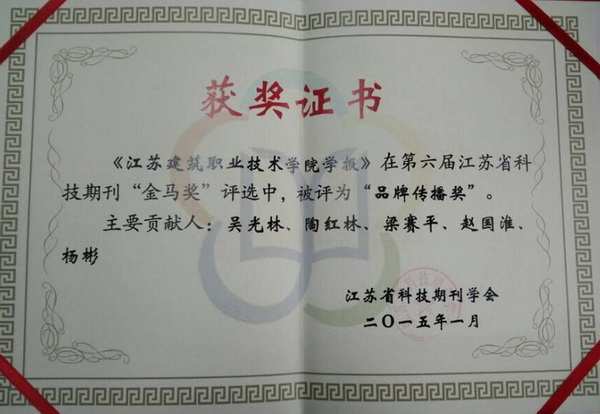 获奖证书
《江苏建筑职业技术学院学报》在第六届江苏省科
技期刊“金马奖”评选中，被评为“品牌传播奖”。
主要贡献人：吴光林、陶红林、梁赛平、赵国淮、
杨彬
江苏省科技期刊学会
二〇一五年一月